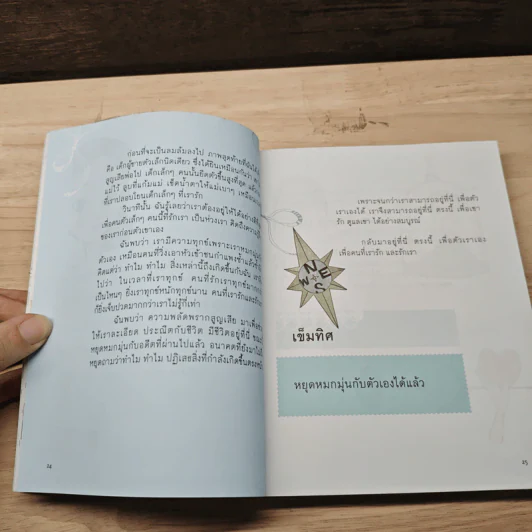 ก่อนที่จะเป็นลมล้มลงไป ภาพสุดท้ายที่ฉันได้
คือ เด็กผู้ชายตัวเล็กนิดเดียว ซึ่งได้ยินเหมือนกันว่า
สูญเสียพ่อไป เด็กเล็กๆ คนนั้นยืดตัวขึ้นสูงที่สุด แล้ว
แม่ไว้ ลูบที่แก้มแม่ เช็ดน้ำตาให้แม่เบาๆ เหมือน
ที่เราปลอบโยนเด็กเล็กๆ ที่เรารัก
วินาทีนั้น ฉันรู้เลยว่าเราต้องอยู่ให้ได้อย่าง
เพื่อคนตัวเล็กๆ คนนี้ที่รักเรา เป็นห่วงเรา คิดถึงความ
ของเราก่อนตัวเขาเอง
ฉันพบว่า เรามีความทุกข์เพราะเราหมกมุ่น
ตัวเอง เหมือนคนที่วิ่งเอาหัวเข้าชนกำแพงซ้ำแล้ว
คิดแต่ว่า ทำไม ทำไม สิ่งเหล่านี้ถึงเกิดขึ้นกับฉัน
ไปว่า ในเวลาที่เราทุกข์ คนที่รักเราทุกข์มาก
เป็นไหนๆ ยิ่งเราทุกข์หนักทุกข์นาน คนที่เรารักและ
ก็ยิ่งเจ็บปวดมากกว่าเราไม่รู้กี่เท่า
ฉันพบว่า ความพลัดพรากสูญเสีย มาเพื่อ
ให้เราละเอียด ประณีตกับชีวิต มีชีวิตอยู่ที่นี่
หยุดหมกมุ่นกับอดีตที่ผ่านไปแล้ว อนาคตที่ยังมาไม่
หยุดถามว่าทำไม ทำไม ปฏิเสธสิ่งที่กำลังเกิดขึ้นตรงหน้า
24
เพราะจนกว่าเราสามารถอยู่ที่นี่ เพื่อตัว
เราเองได้ เราจึงสามารถอยู่ที่นี่ ตรงนี้ เพื่อเขา
รัก ดูแลเขา ได้อย่างสมบูรณ์
กลับมาอยู่ที่นี่ ตรงนี้ เพื่อตัวเราเอง
เพื่อคนที่เรารัก และรักเรา
N
E
W
S
เข็มทิศ
หยุดหมกมุ่นกับตัวเองได้แล้ว
25